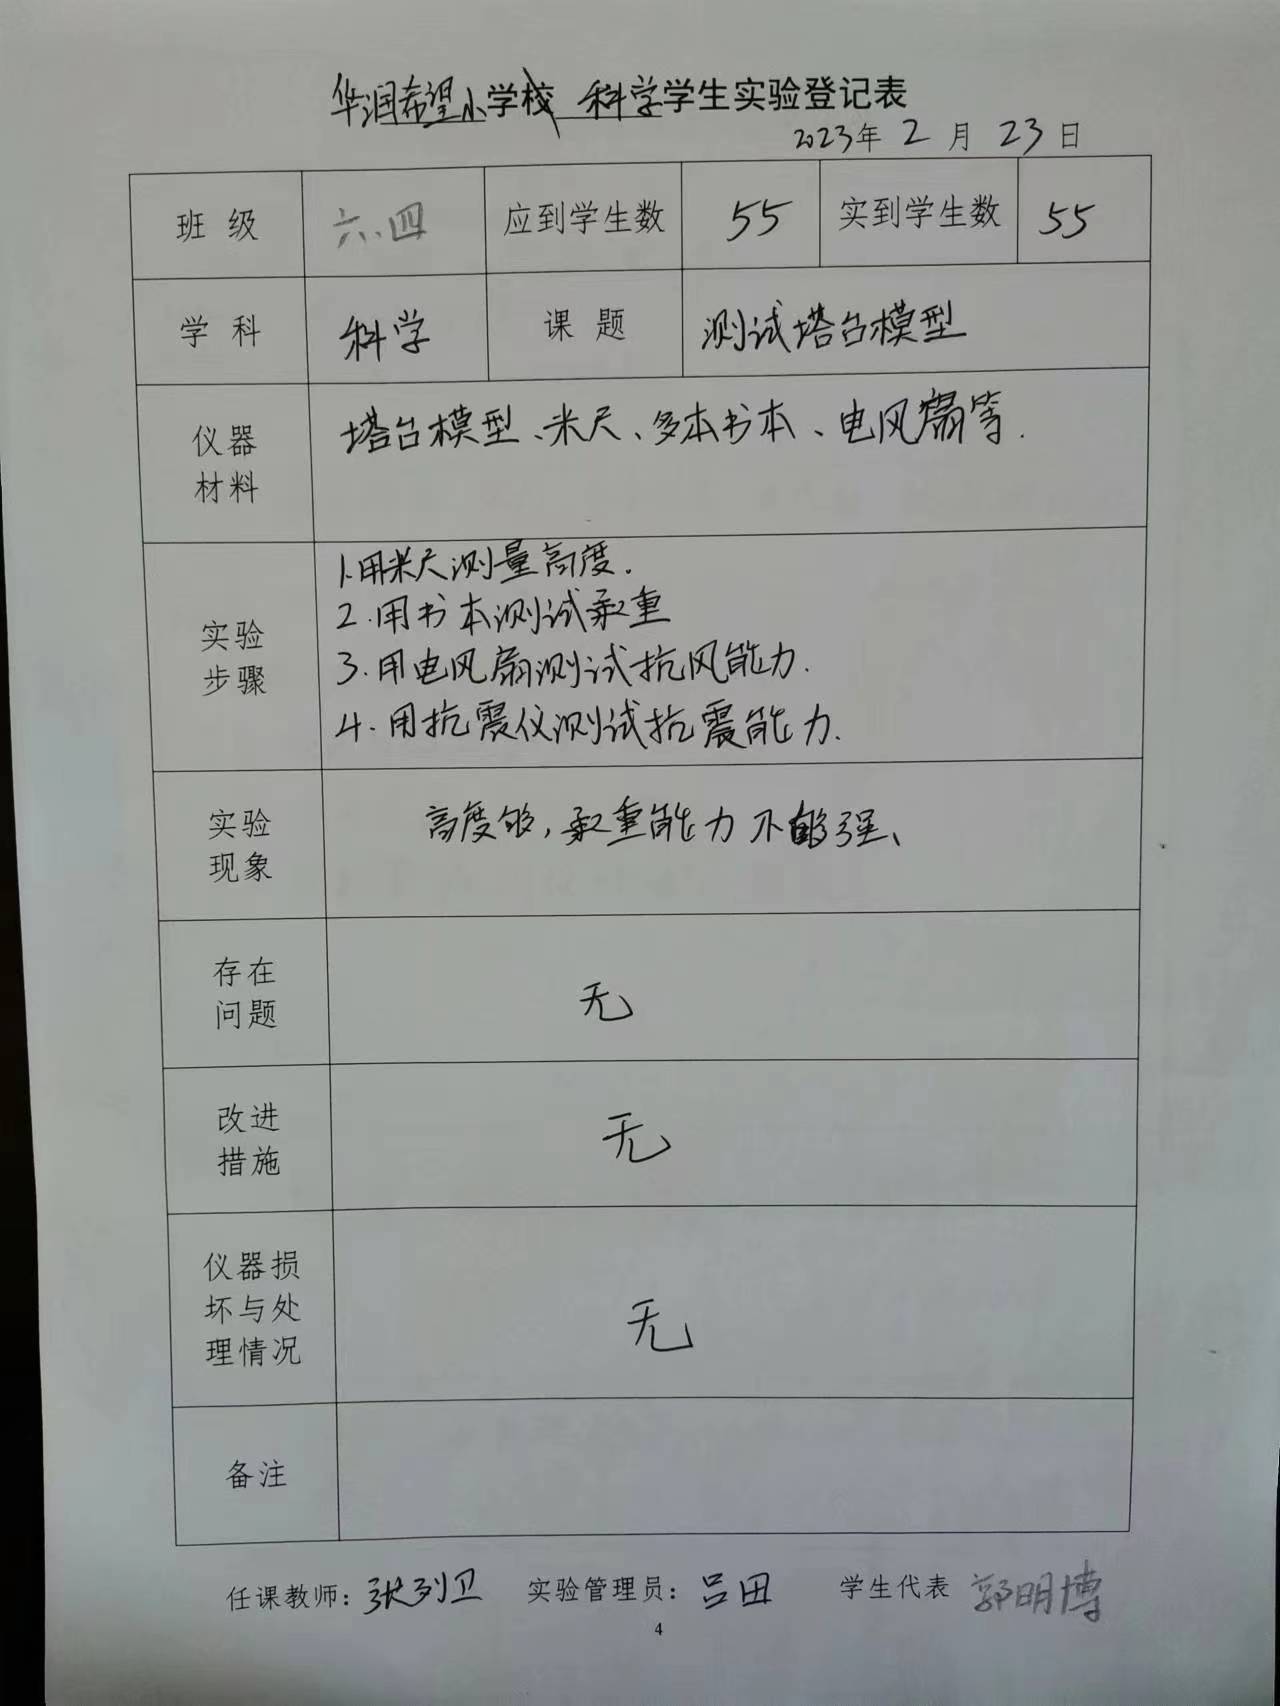 华润希望小学校 科学学生实验登记表
2023年 2 月 23日
班 级 六.四 应到学生数 55 实到学生数 55
学 科 科学 课 题 测试塔台模型
仪器
材料
塔台模型、米尺、多本书本、电风扇等.
实验
步骤
1.用米尺测量高度.
2.用书本测试承重
3.用电风扇测试抗风能力.
4.用抗震仪测试抗震能力.
实验
现象
高度够,承重能力不够强、
存在
问题
无
改进
措施
无
仪器损
坏与处
理情况
无
备注
任课教师:张列卫 实验管理员:吕田 学生代表 郭明博
4